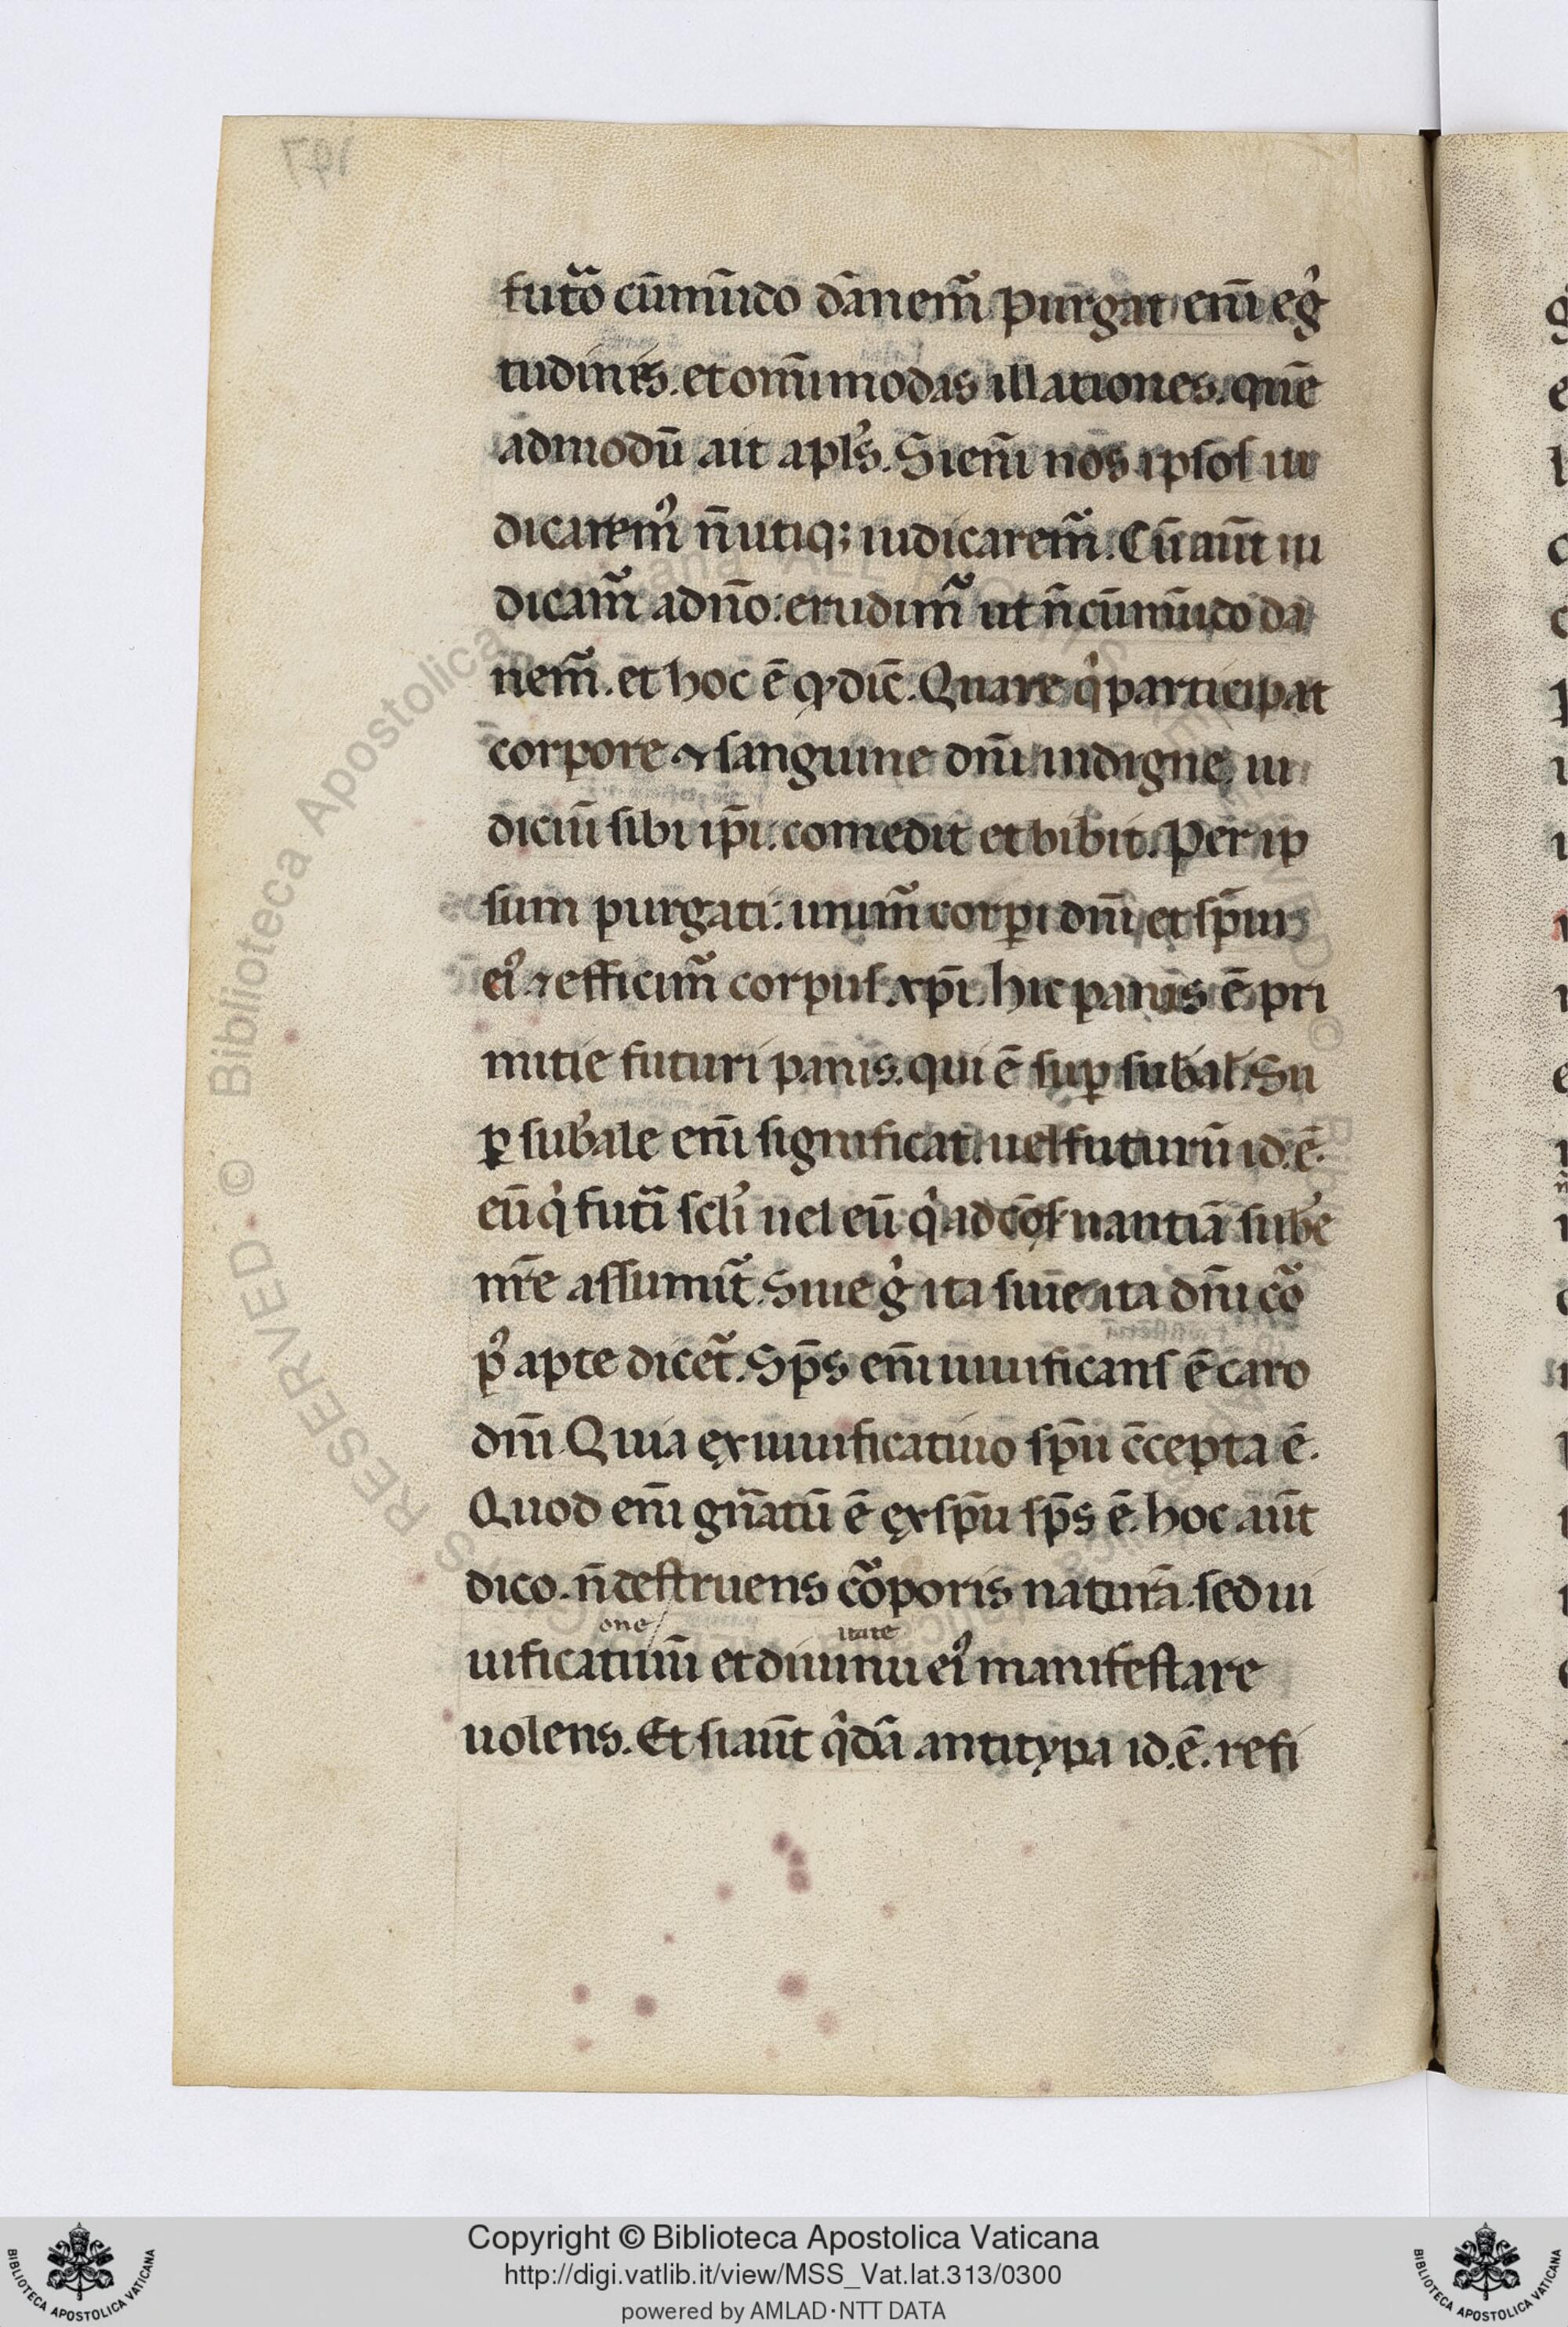 futo᷑ cū mūdo dānem᷑ purgat enī egͥ
tudines. et omīmodas illationes. quē
admodū ait apl's. Si enī nos ipsos iu
dicarem᷒ n̄ utiq; iudicarem᷑. Cū aūt iu
dicam᷑ a dn̄o: erudim᷑ ut n̄ cū mūdo dā
nem᷑. et hoc ē qđ dic̄. Quare qͥ participat
corpore & sanguine dn̄i indigne, iu
diciū sibi ip̄i. comedit et bibit. Per ip
sum purgati: unim᷑ corꝑi dn̄i et sp̄ui
ei᷒ & efficim᷑ corpus xp̄i. hic panis ē pri
mitie futuri panis. qui ē suꝑ subāl. Su
ꝑ sub'ale enī significat. uel futurū id. ē.
eū qͥ futi᷑ scl'i uel eū qͥ ad cōsuantiā sub'e
nr̄e assumit᷑. Siue gͦ ita siue ita dn̄i co᷑
p᷒ apte dicet᷑. Sp̄s enī uiuificans ē caro
dn̄i Quia ex uiuificatiuo sp̄u c̄cepta ē.
Quod enī gn̄atū ē ex sp̄u sp̄s ē. hoc aūt
dico. n̄ destruens co᷑poris naturā. sed ui
one itate
uificatiuū et diuinū ei᷒ manifestare
uolens. Et si aūt qͥdā antitypa id. ē. refi
197
Copyright © Biblioteca Apostolica Vaticana
http://digi.vatlib.it/view/MSS_Vat.lat.313/0300
powered by AMLAD·NTT DATA
BIBLIOTECA APOSTOLICA VATICANA
BIBLIOTECA APOSTOLICA VATICANA